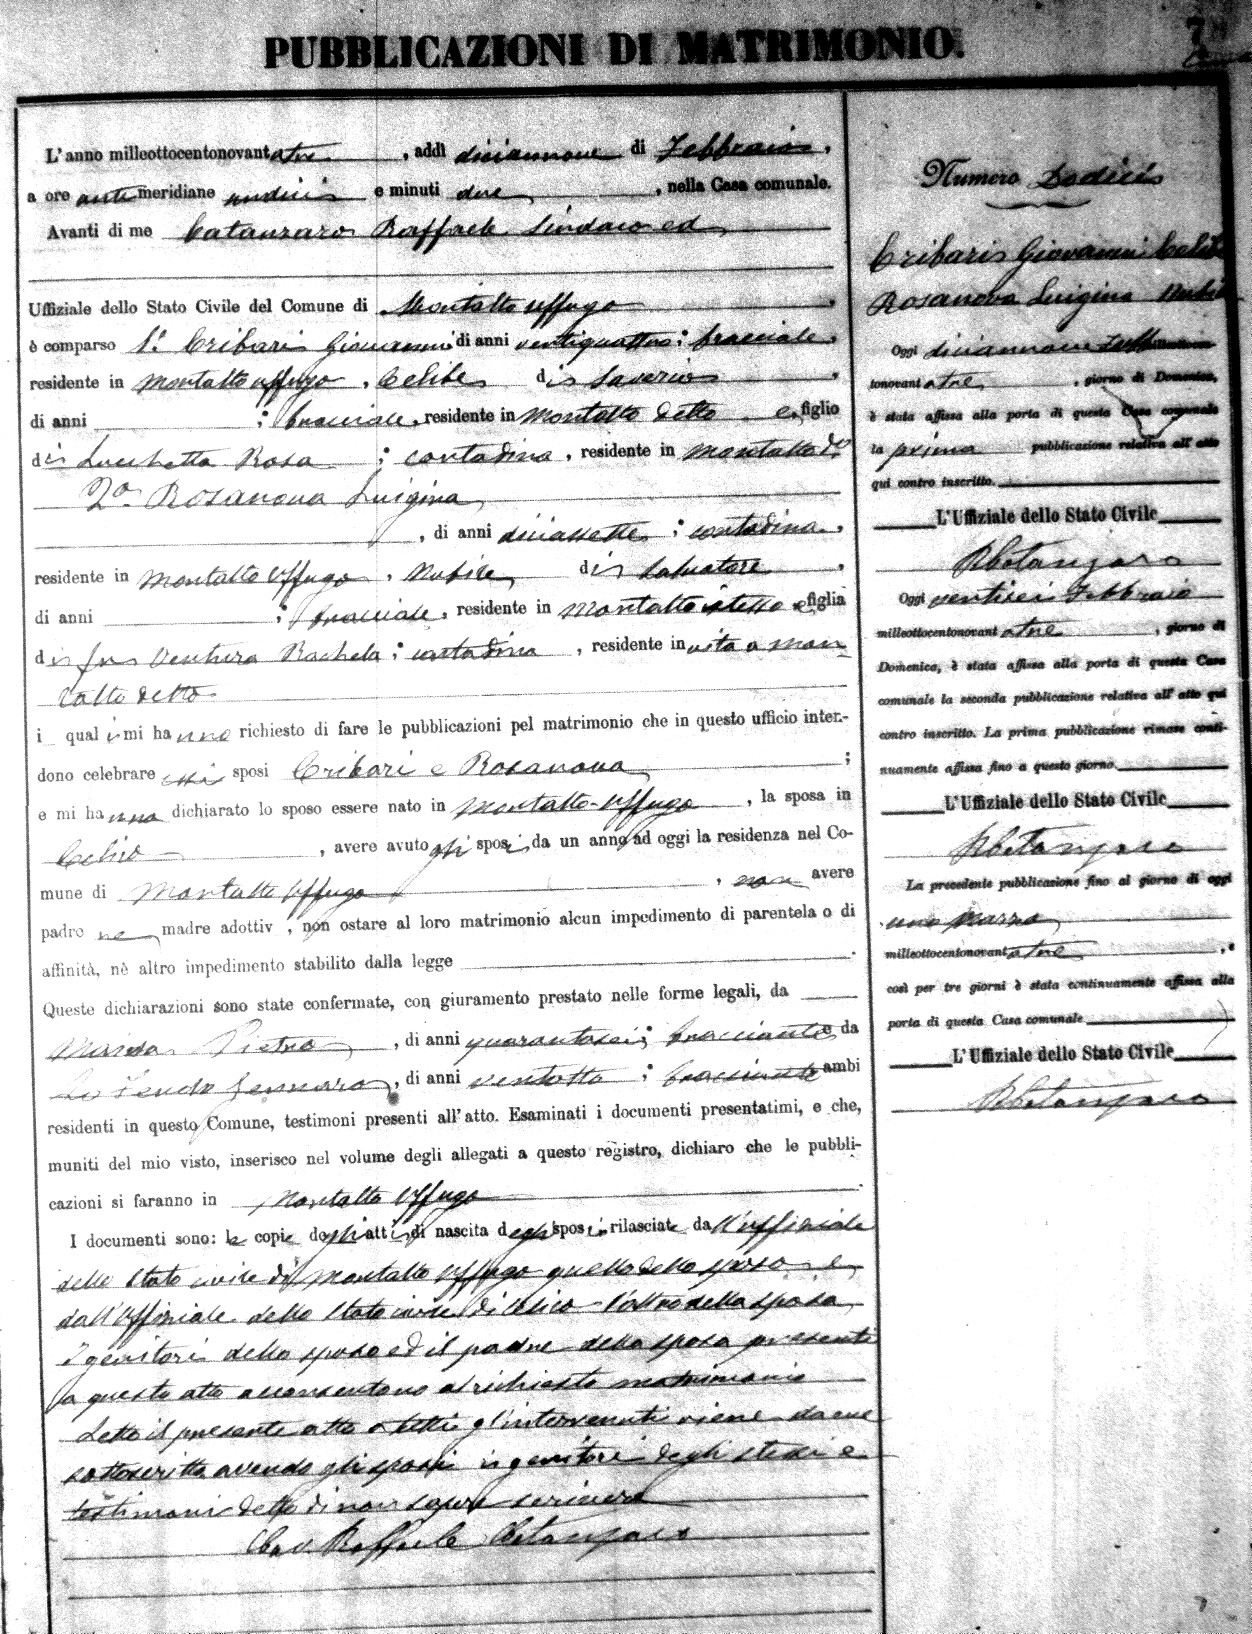 PUBBLICAZIONI DI MATRIMONIO.
L'anno milleottocentonovantatre, addì diciannove di Febbraio,
a ore antimeridiane undici e minuti due, nella Casa comunale.
Avanti di me Catanzaro Raffaele Sindaco ed
Uffiziale dello Stato Civile del Comune di Montalto Uffugo
è comparso 1.° Cribari Giovanni di anni ventiquattro; bracciale,
residente in Montalto Uffugo, Celibe di Saverio,
di anni ; bracciale, residente in Montalto detto e figlio
di Lucchetta Rosa ; contadina, residente in Montalto d.°
2.° Rosanova Luigina
, di anni diciassette ; contadina,
residente in Montalto Uffugo, Nubile, di Salvatore,
di anni ; bracciale, residente in Montalto istesso e figlia
di fu Ventura Rachela ; contadina, residente in vita a Mon
talto detto
i quali mi hanno richiesto di fare le pubblicazioni pel matrimonio che in questo ufficio inten-
dono celebrare essi sposi Cribari e Rosanova ;
e mi hanno dichiarato lo sposo essere nato in Montalto-Uffugo, la sposa in
, avere avuto gli sposi da un anno ad oggi la residenza nel Co-
mune di Montalto Uffugo, non avere
padre ne madre adottiv , non ostare al loro matrimonio alcun impedimento di parentela o di
affinità, nè altro impedimento stabilito dalla legge .
Queste dichiarazioni sono state confermate, con giuramento prestato nelle forme legali, da
Pietro, di anni quarantasei; bracciante e da
Gennaro, di anni ventotto ; bracciante ambi
residenti in questo Comune, testimoni presenti all'atto. Esaminati i documenti presentatimi, e che,
muniti del mio visto, inserisco nel volume degli allegati a questo registro, dichiaro che le pubbli-
cazioni si faranno in Montalto Uffugo .
I documenti sono: le copie degli atti di nascita degli sposi rilasciate dall'uffiziale
dello Stato civile di Montalto Uffugo quella dello sposo e
dall'Uffiziale dello Stato civile di l'altra della sposa
I genitori dello sposo ed il padre della sposa presenti
a questo atto acconsentono al richiesto matrimonio
Letto il presente atto a tutti gl'intervenuti viene da me
sottoscritto avendo gli sposi i genitori degli stessi e
testimoni detto di non sapere scrivere
Cav. Raffaele Catanzaro
7
Numero Dodici
Cribari Giovanni Celibe
Rosanova Luigina Nubile
Oggi diciannove Febb milleottocen-
tonovantatre, giorno di Domenica,
è stata affissa alla porta di questa Casa comunale
la prima pubblicazione relativa all'atto
qui contro inscritto.
L'Uffiziale dello Stato Civile
RCatanzaro
Oggi ventisei Febbraio
milleottocentonovantatre, giorno di
Domenica, è stata affissa alla porta di questa Casa
comunale la seconda pubblicazione relativa all'atto qui
contro inscritto. La prima pubblicazione rimase conti-
nuamente affissa fino a questo giorno.
L'Uffiziale dello Stato Civile
RCatanzaro
La precedente pubblicazione fino al giorno di oggi
uno Marzo
milleottocentonovantatre, e
così per tre giorni è stata continuamente affissa alla
porta di questa Casa comunale
L'Uffiziale dello Stato Civile
RCatanzaro